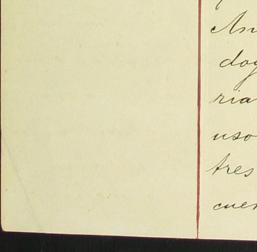 An
dog
ria
uso
tres
cuen